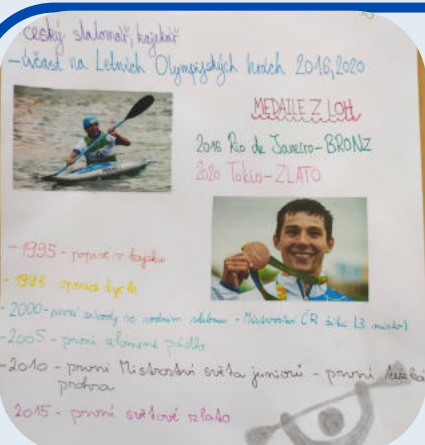 český slalomář, kajakář
- Účast na Letních Olympijských hrách 2016, 2020
MEDAILE Z LOH
2016 Rio de Janeiro - BRONZ
2020 Tokio - ZLATO
- 1995 - poprvé v kajaku
- 1998 operace kýle
- 2000 - první závody ve vodním slalomu - Mistrovství ČR žáků (3 místo)
- 2005 - první zlomené pádlo
- 2010 - první Mistrovství světa juniorů - první těžká
prohra
2015 - první světové zlato